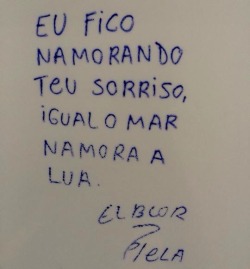 EU FICO
NAMORANDO
TEU SORRISO,
IGUAL O MAR
NAMORA A
LUA.